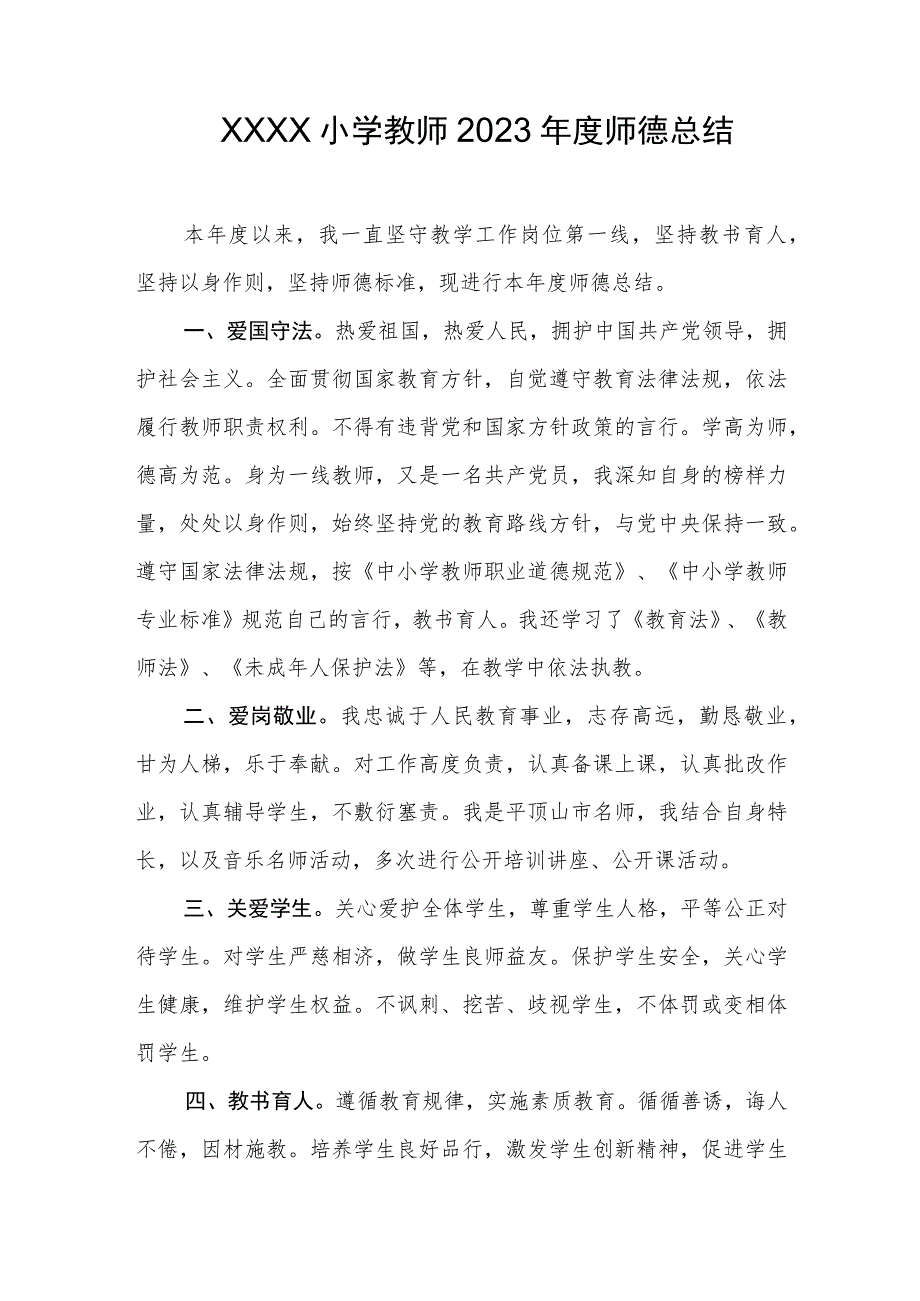 XXXX 小学教师 2023 年度师德总结
本年度以来，我一直坚守教学工作岗位第一线，坚持教书育人，
坚持以身作则，坚持师德标准，现进行本年度师德总结。
一、爱国守法。热爱祖国，热爱人民，拥护中国共产党领导，拥
护社会主义。全面贯彻国家教育方针，自觉遵守教育法律法规，依法
履行教师职责权利。不得有违背党和国家方针政策的言行。学高为师，
德高为范。身为一线教师，又是一名共产党员，我深知自身的榜样力
量，处处以身作则，始终坚持党的教育路线方针，与党中央保持一致。
遵守国家法律法规，按《中小学教师职业道德规范》、《中小学教师
专业标准》规范自己的言行，教书育人。我还学习了《教育法》、《教
师法》、《未成年人保护法》等，在教学中依法执教。
二、爱岗敬业。我忠诚于人民教育事业，志存高远，勤恳敬业，
甘为人梯，乐于奉献。对工作高度负责，认真备课上课，认真批改作
业，认真辅导学生，不敷衍塞责。我是平顶山市名师，我结合自身特
长，以及音乐名师活动，多次进行公开培训讲座、公开课活动。
三、关爱学生。关心爱护全体学生，尊重学生人格，平等公正对
待学生。对学生严慈相济，做学生良师益友。保护学生安全，关心学
生健康，维护学生权益。不讽刺、挖苦、歧视学生，不体罚或变相体
罚学生。
四、教书育人。遵循教育规律，实施素质教育。循循善诱，诲人
不倦，因材施教。培养学生良好品行，激发学生创新精神，促进学生